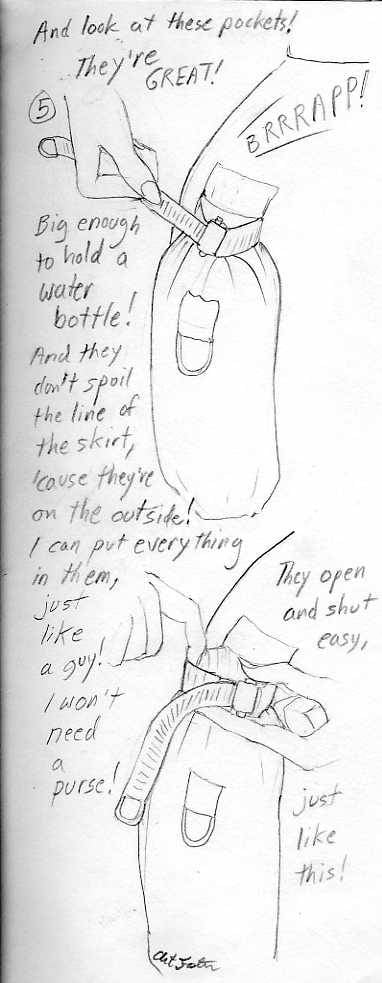 And look at these pockets!
They're
GREAT!
5
BRRRAPP!
Big enough
to hold a
water
bottle!
And they
don't spoil
the line of
the skirt,
'cause they're
on the outside!
I can put everything
in them,
just
like
a guy!
I won't
need
a
purse!
They open
and shut
easy,
just
like
this!